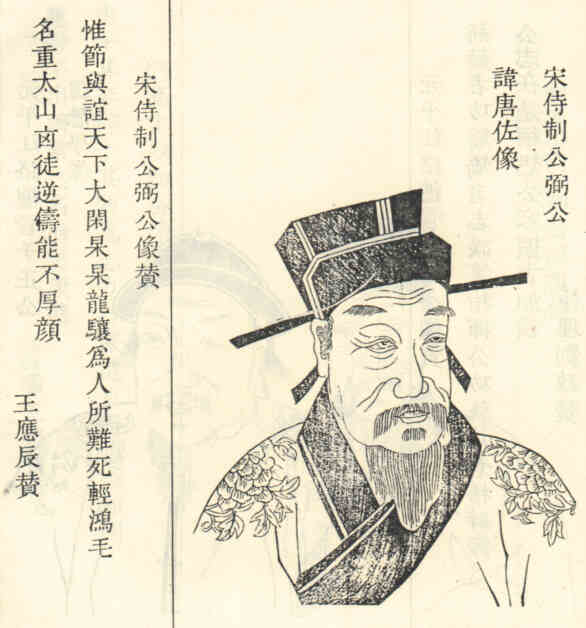 宋侍制公弼公
諱唐佐像
宋侍制公弼公像赞
惟節與誼天下大閑杲杲龍驤爲人所難死輕鴻毛
名重太山卤徒逆儔能不厚顔
王應辰赞